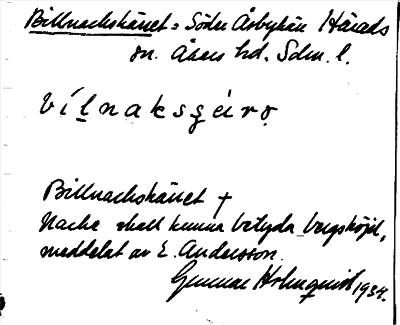 Billnachskäret = Söder Åsbyhär Härads
sn. Åkers hd. Sdm. l.
bílnaksʒérǝ
Billnachskäret +
Nache skall kunna betyda bergshöjd,
meddelat av E. Andersson.
Gunnar Holmquist 1934.